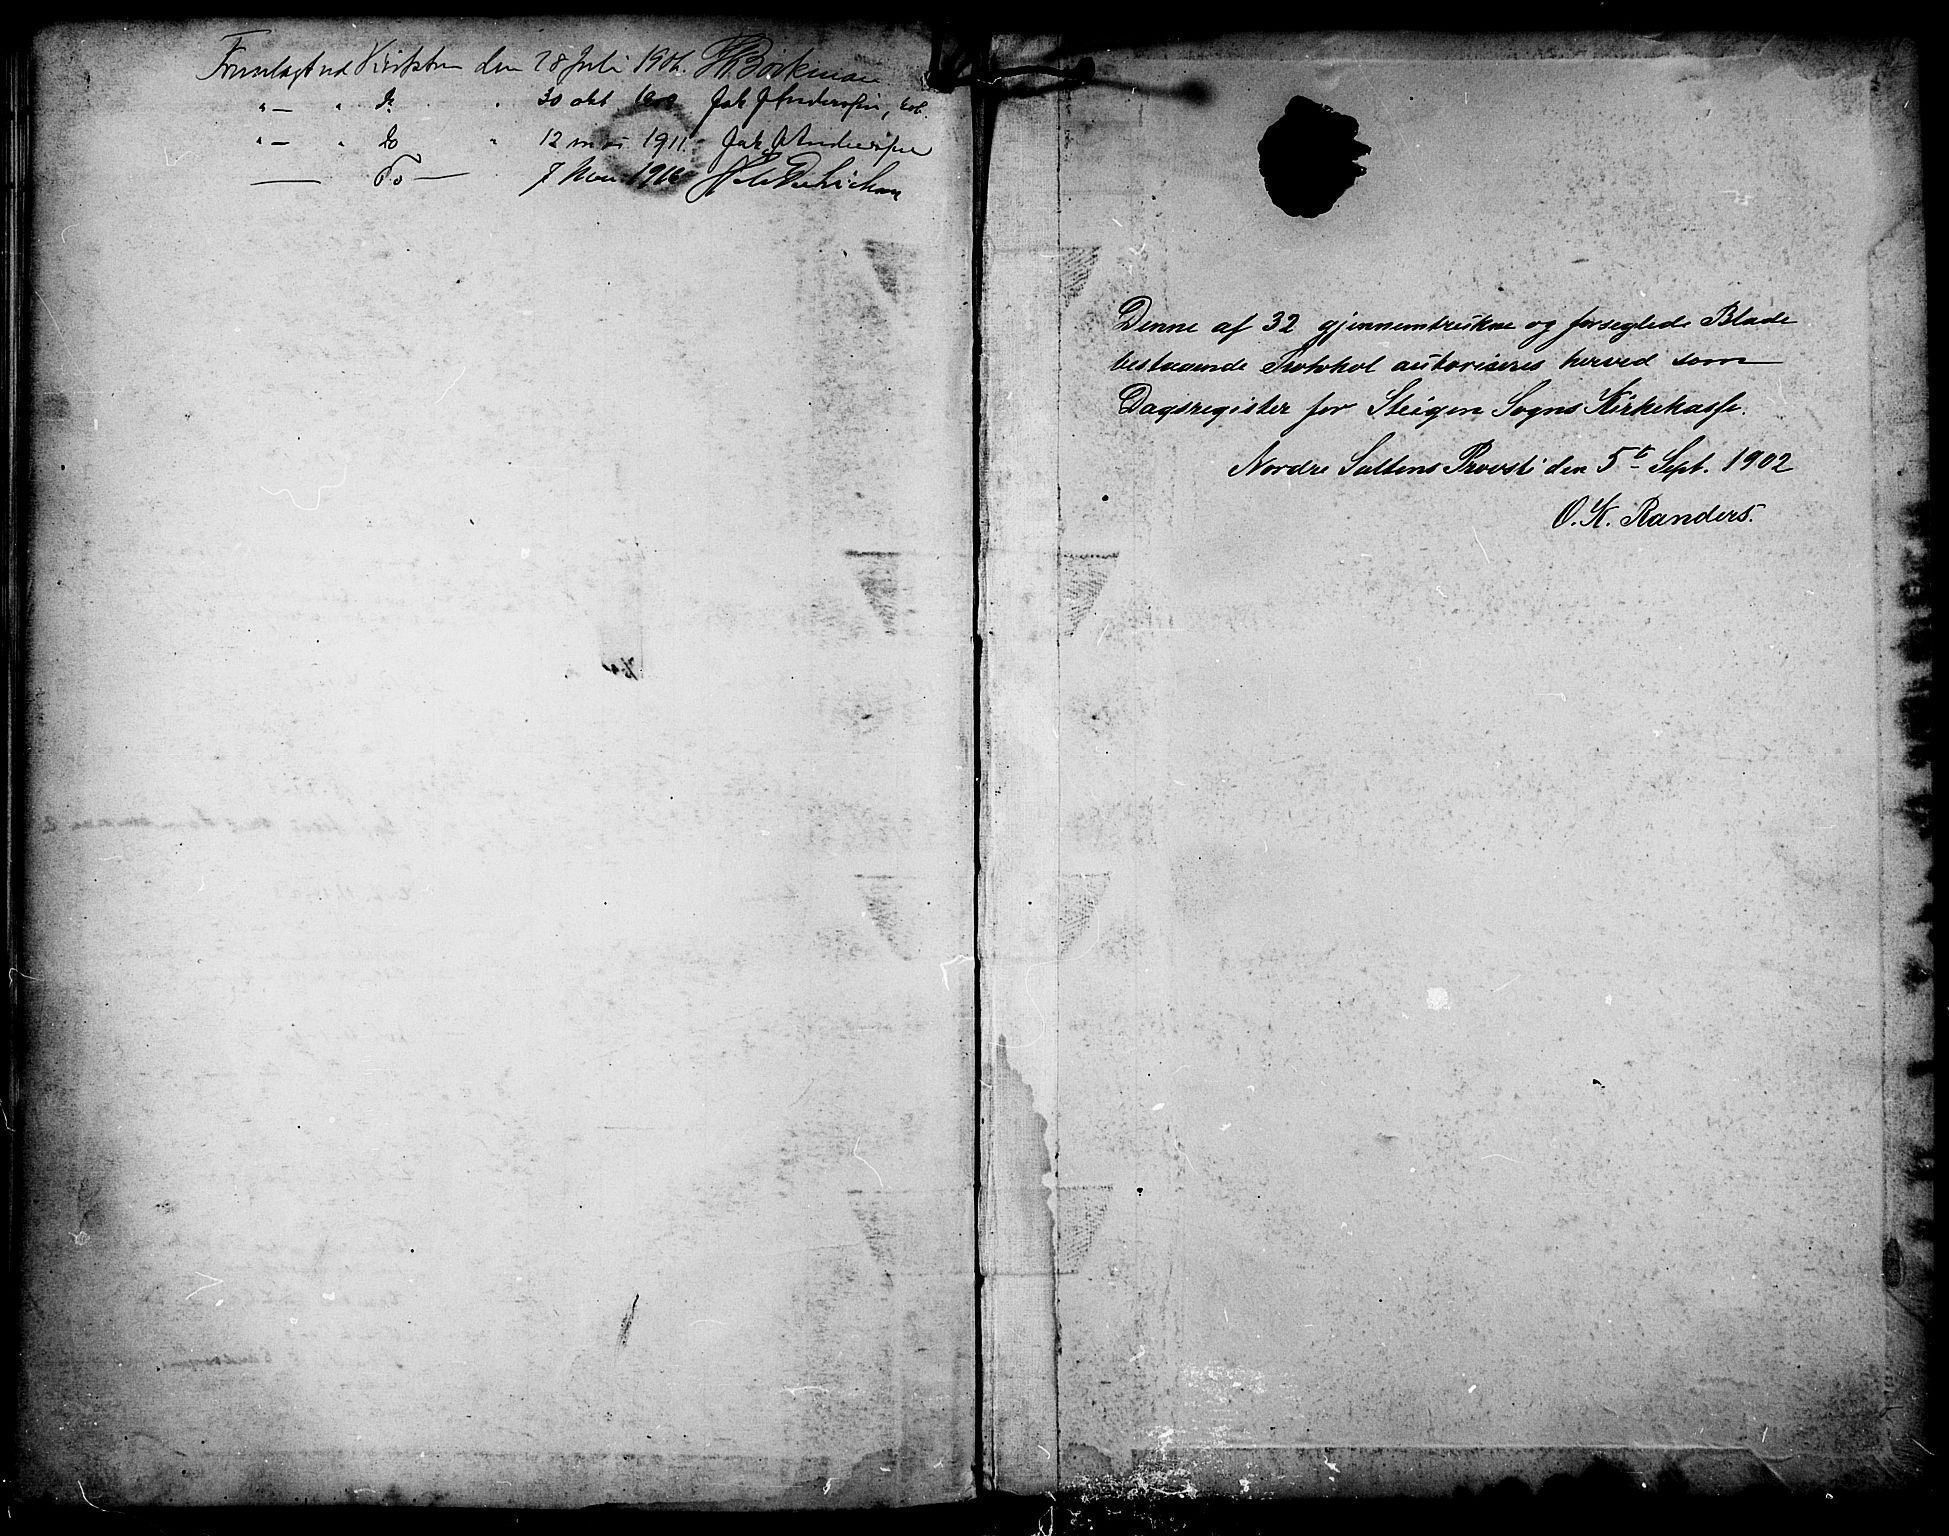 Fremlagt ved Visitatsen den 28 Juli 1906. Bøckman
" — " Do " 30 okt. Jak J Anderssen,
" — " Do " 12 mai 1911. Jak J Anderssen
— Do — 7 Nov. 1916
Denne af 32 gjennemtrukne og forseglede Blade
bestaaende Protokol autoriseres herved som
Dagsregister for Steigen Sogns Kirkekasse.
Nordre Saltens Provsti den 5t Sept. 1902
O. K. Randers.